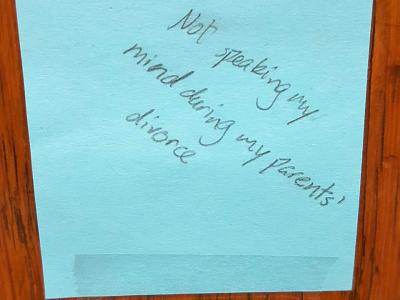 Not speaking my
mind during my parents'
divorce